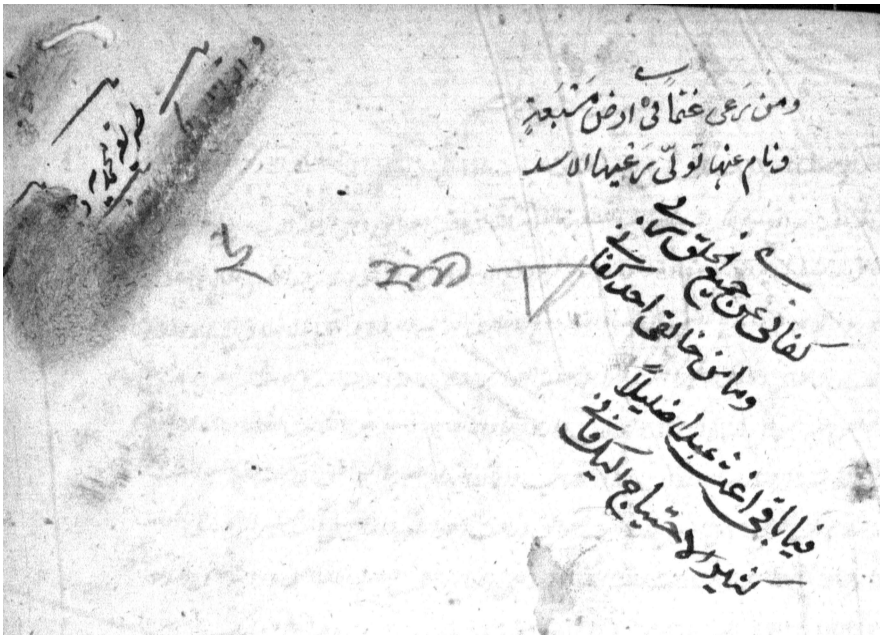 ومن رعى غنماً في ارض مسبعةٍ
ونام عنها تولّى رعيها الاسد
كفاني عن جميع الخلق كافي
وما من خالقي احد كفاني
فيا باقي اغث عبدا ضليلاً
كثير الاحتياج اليك فاني